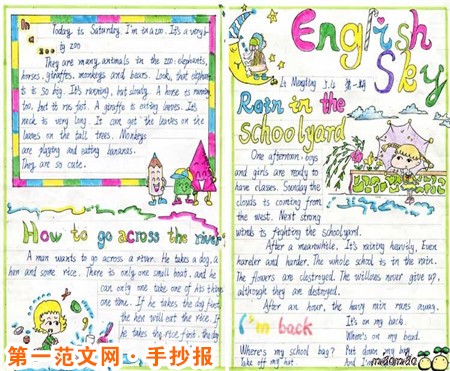 In a zoo
Today is Saturday, I'm in a zoo. It's a very
big zoo
They are many animals in the zoo: elephants,
horses, giraffes, monkeys and bears. Look, that elephant
is so big. It's running, but slowly. A horse is running
too, but it's not fat. A giraffe is eating leaves. It's
neck is very long. It can get the leaves on the
leaves on the tall trees. Monkeys
are playing and eating bananas.
They are so cute.
How to go across the river
A man wants to go across a river. He takes a dog, a
hen and some rice. There is only one small boat, and he
can only one take one of his things
one time. If he takes the dog first,
the hen will eat the rice. If
he takes the rice first, the dog
English
Sky
第一期
Rain in the
schoolyard
One afternoon, boys
and girls are ready to
have classes. Sounday the
clouds is coming from
the west. Next strong
winds is fighting the schoolyard.
After a meanwhile, It's raining heavily, Even
harder and harder. The whole school is in the rain.
The flowers are clestroyed. The willows never give up,
although they are destroyed.
After an hour, the heavy rain runs away.
I'm back
Where's my school bag?
Take off my hat.
It's on my back.
Where's on my head.
Put down my bag
And I'm
miaomiao
第一范文网·手抄报